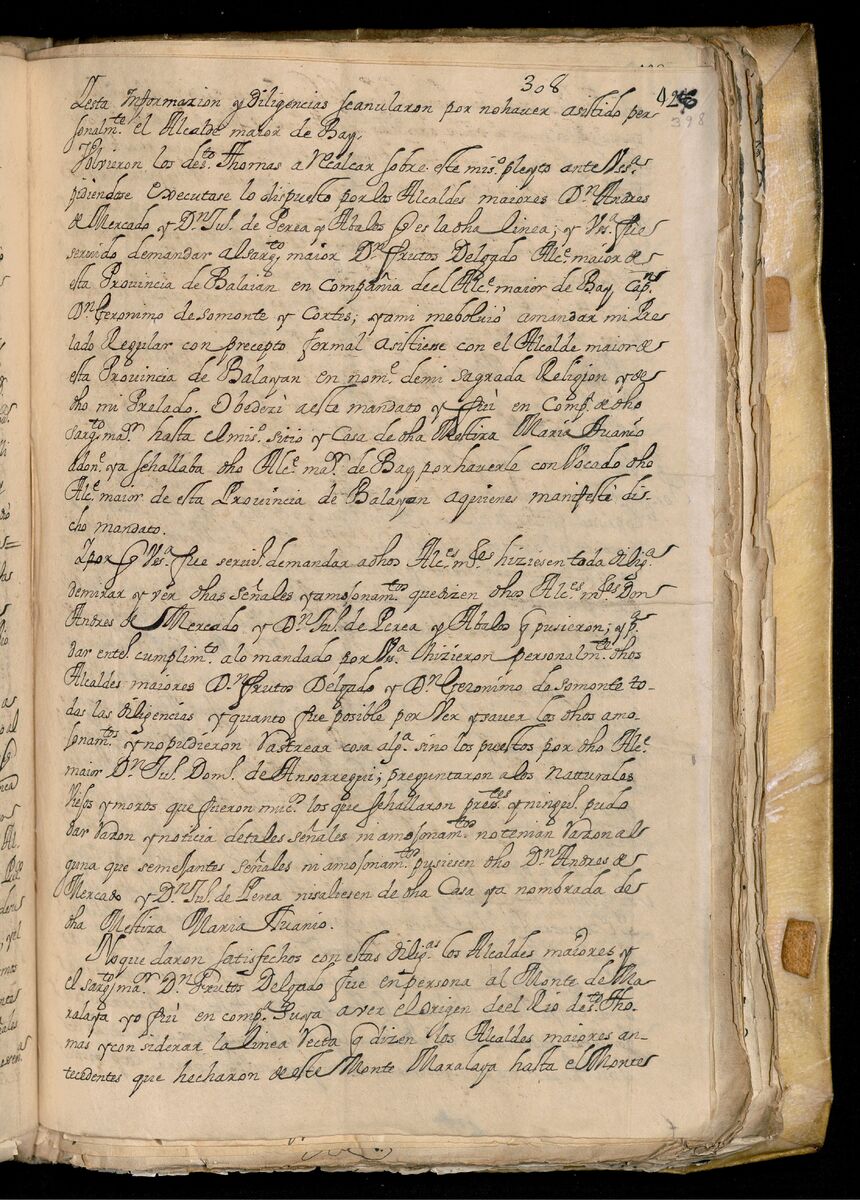 308
428
398
Yesta Informazion y Diligencias seanularon por nohaver asistido per
sonalm.te el Alcalde maior de Bay.
Volvieron los des.to Thomas a Recalcar sobre este mis.o pleyto ante Vs.a
pidiendose Executase lo dispuesto por los Alcaldes maiores D.n Andres
de Mercado y D.n Jul. de Perea y Abalos q es la dha linea; y Vs.a fue
servido demandar alsarg.to maior D.n frutos Delgado Alc.e maior de
esta Provincia de Balaian en Compañia deel Alc.e maior de Bay Cap.n
D.n Geronimo de Somonte y Cortes; yami mebolvió amandar mi Pre
lado Regular con precepto formal asistiese con el Alcalde maior de
esta Provincia de Balayan en nom.e demi sagrada Religion y de
dho mi Prelado. Obedezì aeste mandato y fuì en Comp.a de dho
sarg.to ma.r hasta el mis.o sitio y Casa de dha Mestiza Maria Auanio
adon.e ya sehallaba dho Alc.e ma.r de Bay por haverlo conVocado dho
Alc.e maior de esta Provincia de Balayan aquienes manifesté di-
cho mandato.
Ypor q Vs.a fue servi.l demandar adhos Alc.es m.res hiziesen toda dilig.a
demirar y ver dhas señales y amojonam.tos quedizen dhos Alc.es m.res Don
Andres de Mercado y D.n Jul. de Perea y Abalos q pusieron; y p.a
dar ente.l cumplim.to alo mandado por Vs.a hizieron personalm.te dhos
Alcaldes maiores D.n frutos Delgado y D.n Geronimo de Somonte to-
das las diligencias y quanto fue posible por Ver y saver los dhos amo-
jonam.tos y nopudieron Rastrear cosa alg.a sino los puestos por dho Alc.e
maior D.n Jul. Dom.l de Ansorregui; preguntaron alos Natturales
Viejos y mozos que fueron muc.s los que sehallaron pres.tes y ningu.l pudo
dar Razon y noticia detales señales ni amojonam.tos notenian Razon al
guna que semejantes señales ni amojonam.tos pusiesen dho D.n Andres de
Mercado y D.n Jul. de Perea nisaliesen de dha Casa ya nombrada de
dha Mestiza Maria Auanio.
No quedaron satisfechos con estas dilig.as los Alcaldes maiores y
el sarg.to ma.r D.n Frutos Delgado fue enpersona al Monte de Ma
ralaya yo fuì en comp.a suya aver el origen deel Rio des.to Tho
mas y considerar la linea Recta q dizen los Alcaldes maiores an-
tecedentes que hecharon de este Monte Maralaya hasta el Monte